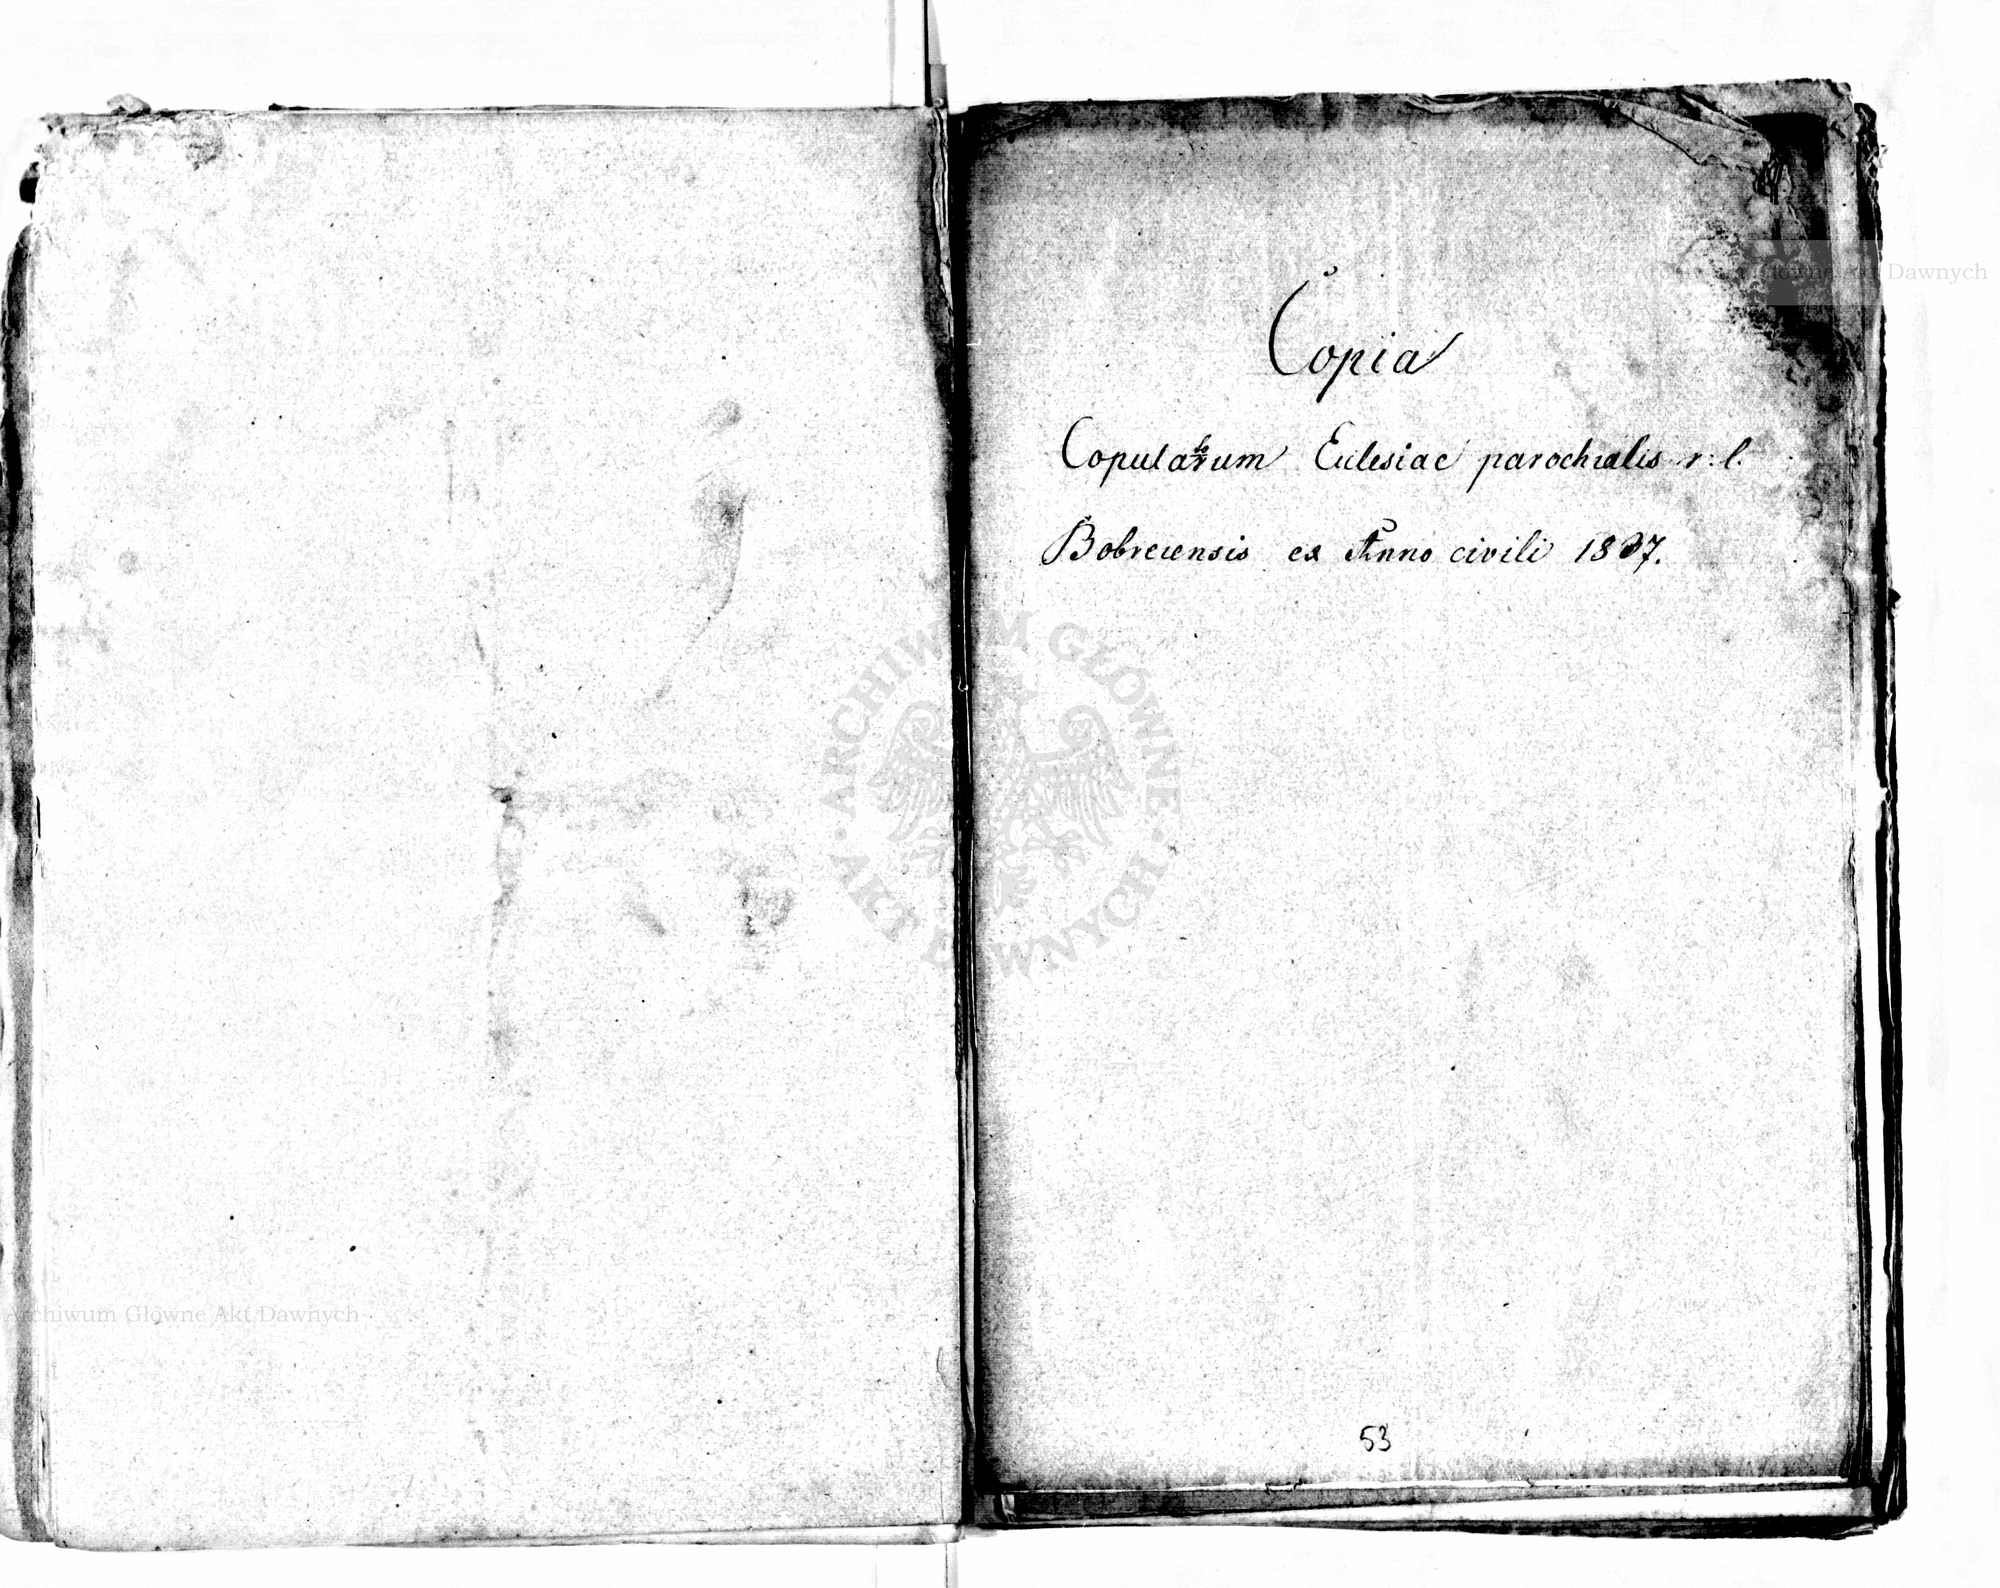 Copia
Copulatorum Eclesiae parochialis r: l.
Bobrecensis ex Anno civili 1837.
53
ARCHIWUM GŁÓWNE AKT DAWNYCH
Archiwum Główne Akt Dawnych
Archiwum Główne Akt Dawnych